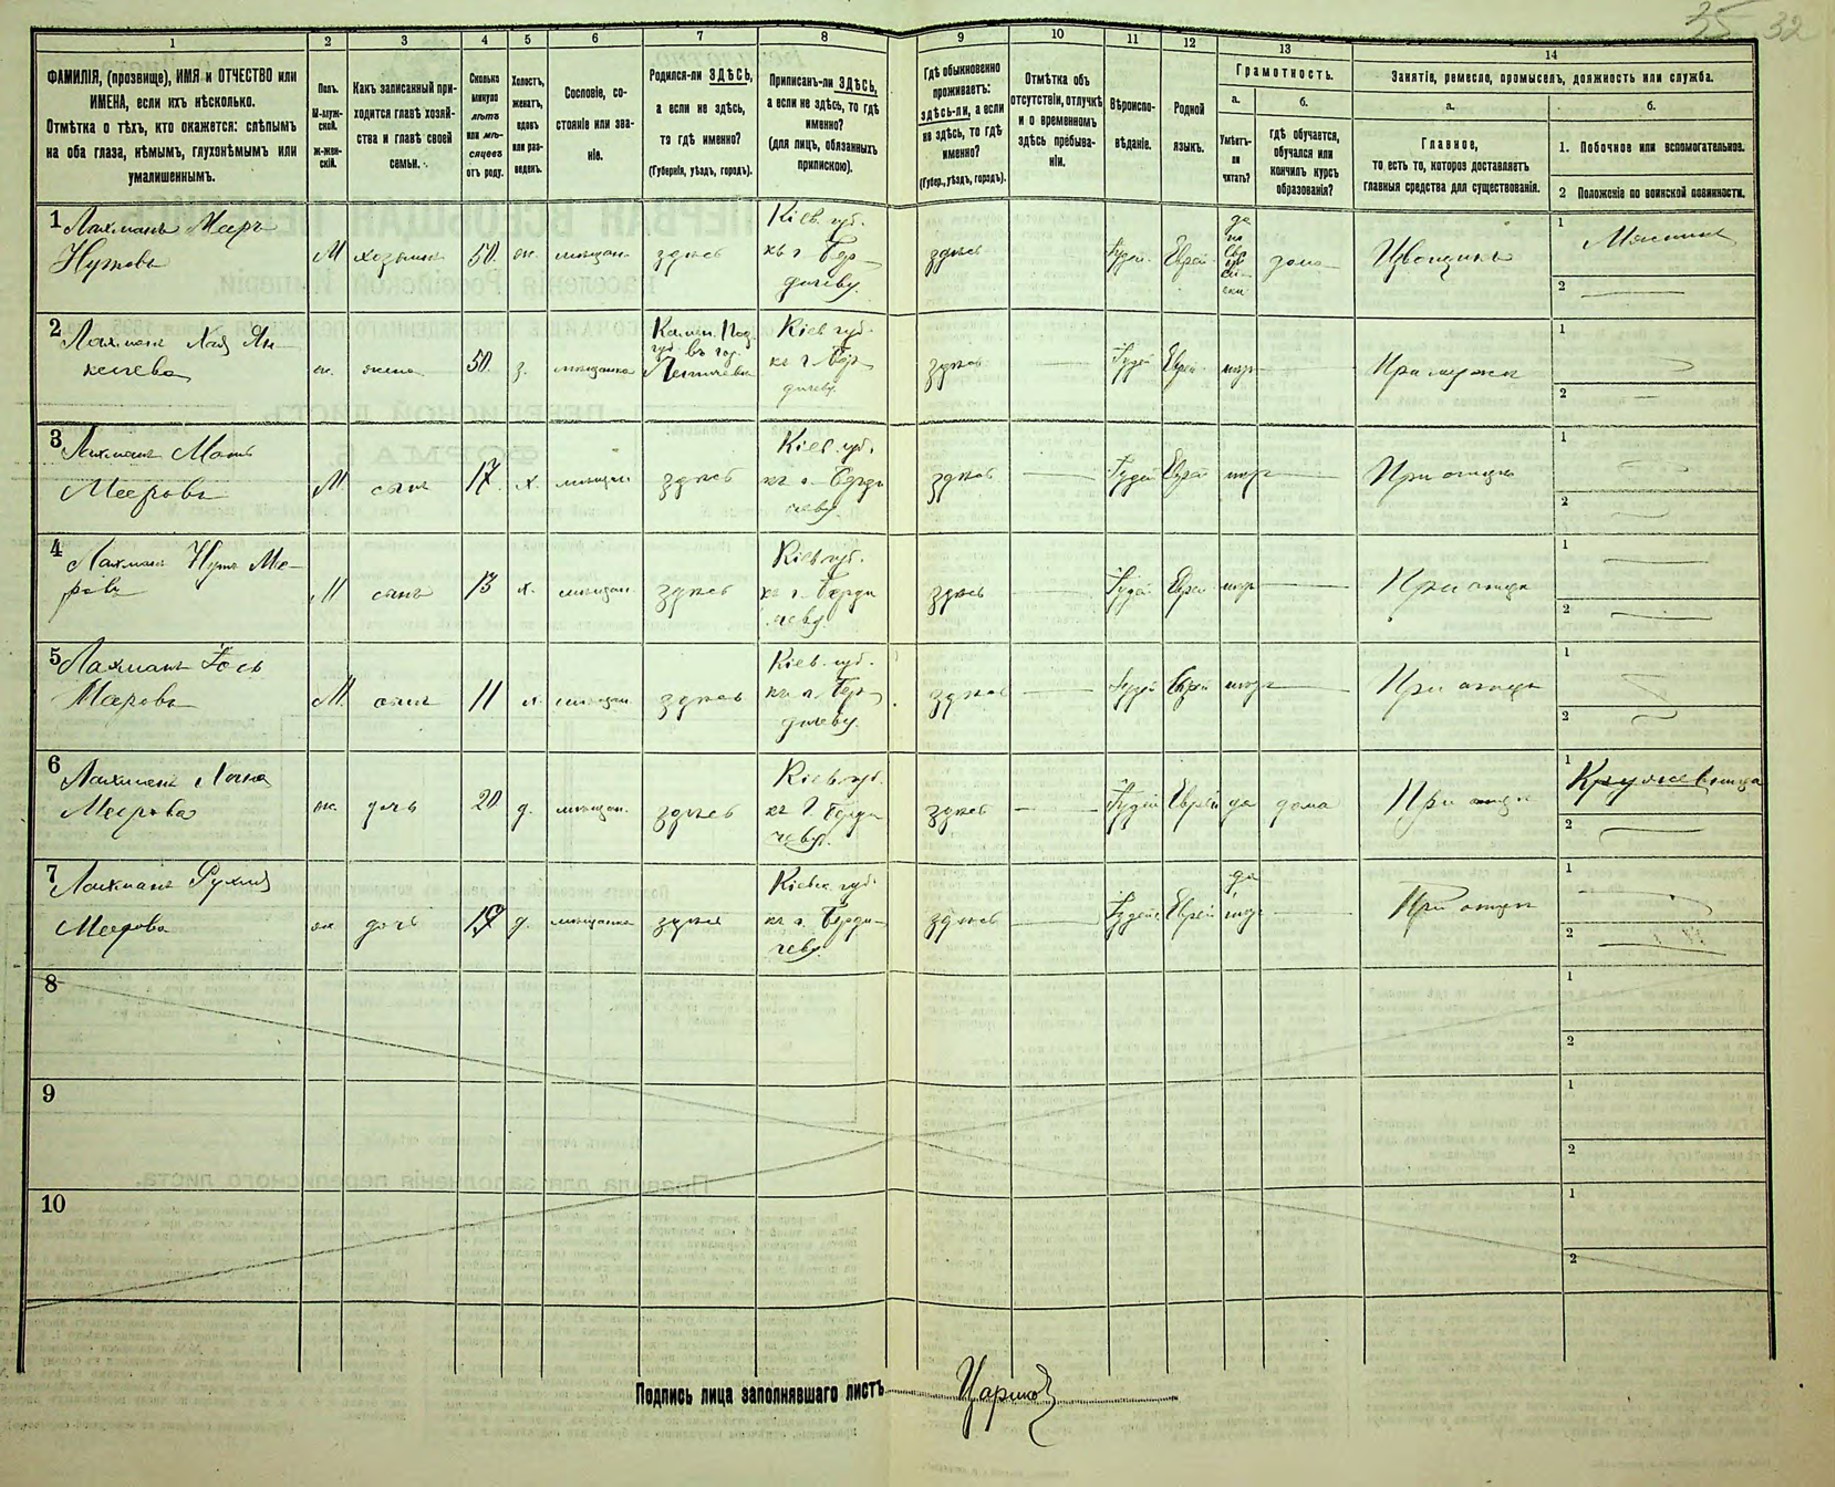 35 32
1 2 3 4 5 6 7 8 9 10 11 12 13 14
ФАМИЛІЯ, (прозвище), ИМЯ и ОТЧЕСТВО или
ИМЕНА, если ихъ нѣсколько.
Отмѣтка о тѣхъ, кто окажется: слѣпымъ
на оба глаза, нѣмымъ, глухонѣмымъ или
умалишеннымъ.
Полъ.
М-муж-
ской.
ж-жен-
скій.
Какъ записанный при-
ходится главѣ хозяй-
ства и главѣ своей
семьи.
Сколько
минуло
лѣтъ
или мѣ-
сяцевъ
отъ роду.
Холостъ,
женатъ,
вдовъ
или раз-
веденъ.
Сословіе, со-
стояніе или зва-
ніе.
Родился-ли ЗДѢСЬ,
а если не здѣсь,
то гдѣ именно?
(Губернія, уѣздъ, городъ).
Приписанъ-ли ЗДѢСЬ,
а если не здѣсь, то гдѣ
именно?
(для лицъ, обязанныхъ
припискою).
Гдѣ обыкновенно
проживаетъ:
здѣсь-ли, а если
не здѣсь, то гдѣ
именно?
(Губер., уѣздъ, городъ).
Отмѣтка объ
отсутствіи, отлучкѣ
и о временномъ
здѣсь пребыва-
ніи.
Вѣроиспо-
вѣданіе.
Родной
языкъ.
Грамотность.
а. б.
Умѣетъ-
ли
читать?
гдѣ обучается,
обучался или
кончилъ курсъ
образованія?
Занятіе, ремесло, промыселъ, должность или служба.
а. б.
Главное,
то есть то, которое доставляетъ
главныя средства для существованія.
1. Побочное или вспомогательное.
2 Положеніе по воинской повинности.
1 Лахманъ Мееръ
М хозяинъ 50. ж. мѣщан. здѣсь
Кіев. губ.
къ г. Бер-
дичеву.
здѣсь Іудей. Еврей. да дома 1
2
2 Лахманъ Хая Ян-
келева
ж. жена 50. з. мѣщанка
Кіев губ.
къ г. Бер-
дичеву.
здѣсь Іудей Еврей нѣтъ При мужѣ 1
2
3 Лахманъ
Мееровъ
М. сынъ 17. х. мѣщан. здѣсь
Кіев. губ.
къ г. Берди
чеву
здѣсь Іудей Еврей нѣтъ При отцѣ 1
2
4 Лахманъ Нутъ Ме-
ровъ
М сынъ 13 х. мѣщан. здѣсь
Кіев губ.
къ г. Берди
чеву.
здѣсь Іудей Еврей нѣтъ При отцѣ 1
2
5 Лахманъ Іось
Меровъ
М. сынъ 11 х. мѣщан. здѣсь
Кіев. губ.
къ г. Бер
дичеву.
здѣсь Іудей Еврей нѣтъ При отцѣ 1
2
6 Лахманъ
Меерова
ж. дочь 20 д. мѣщан. здѣсь
Кіев губ.
къ г. Берди
чеву.
здѣсь Іудей Еврей да дома При отцѣ 1 Кружевница
2
7 Лахманъ Рухля
Меерова
ж дочь д. мѣщанка здѣсь
Кіевс губ.
къ г. Берди-
чеву.
здѣсь Іудей Еврей нѣтъ При отцѣ 1
2
8 1
2
9 1
2
10 1
2
Подпись лица заполнявшаго листъ